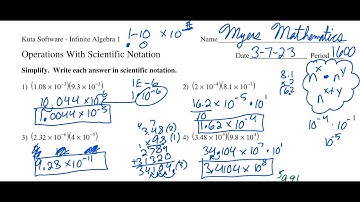 Kuta Software - Infinite Algebra 1
1-10 x10
Name Myers Mathematics
Operations With Scientific Notation
Date 3-7-23 Period 1600
Simplify. Write each answer in scientific notation.
1) (1.08 × 10⁻³)(9.3 × 10⁻³)
10.044 x10⁻⁶
1.0044 x10⁻⁵
1E-6
1x10⁻⁶
2) (2 × 10⁻⁴)(8.1 × 10⁻¹)
16.2 x10⁻⁵ · 10¹
1.62 x10⁻⁴
8.1
x 2
16.2
nˣ · nʸ
nˣ⁺ʸ
10⁻⁴ · 10⁻¹
10⁻⁵
3) (2.32 × 10⁻⁶)(4 × 10⁻⁵)
9.28 x10⁻¹¹
3.48 (2)
x 9.8 (1)
2784
+31320
34.104
4) (3.48 × 10⁵)(9.8 × 10²)
34.104 x10⁷ · 10¹
3.4104 x10⁸